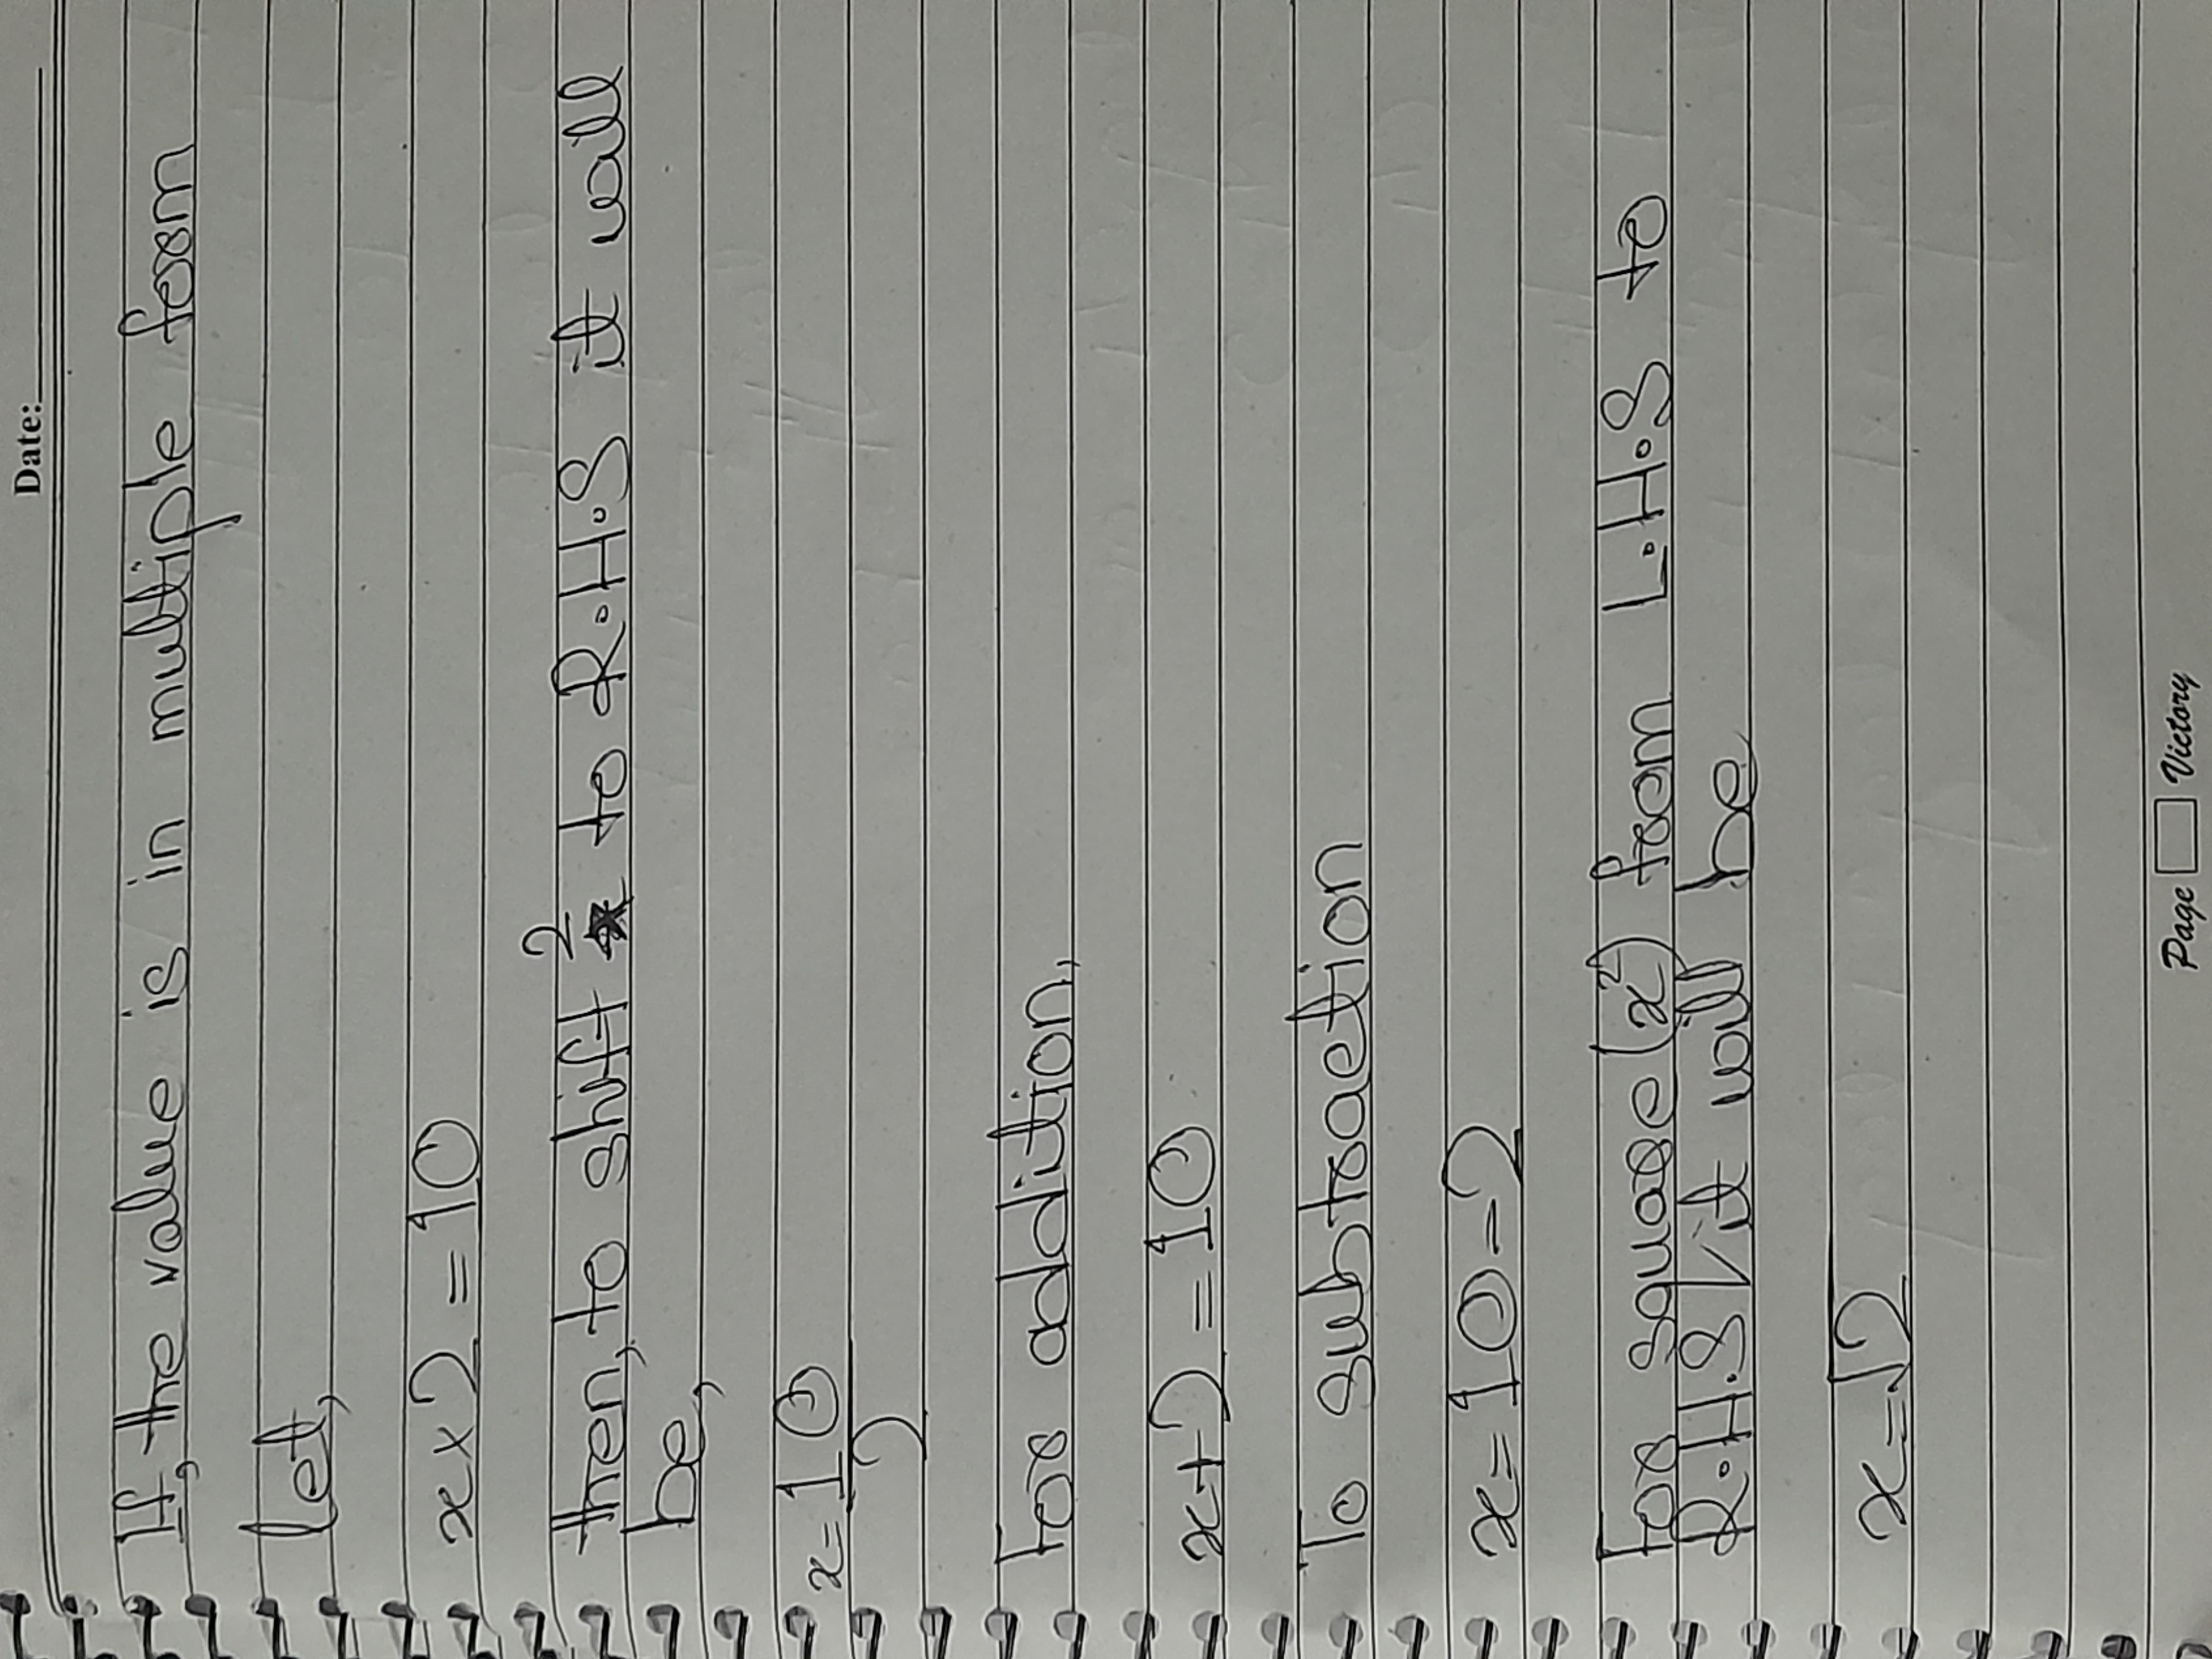 Date:
If, the value is in multiple form
let,
x × 2 = 10
then, to shift 2 to R.H.S it will
be,
x = 10/2
For addition,
x + 2 = 10
To subtraction
x = 10 - 2
For square (x²) from L.H.S to
R.H.S √ it will be
x = √2
Page Victory